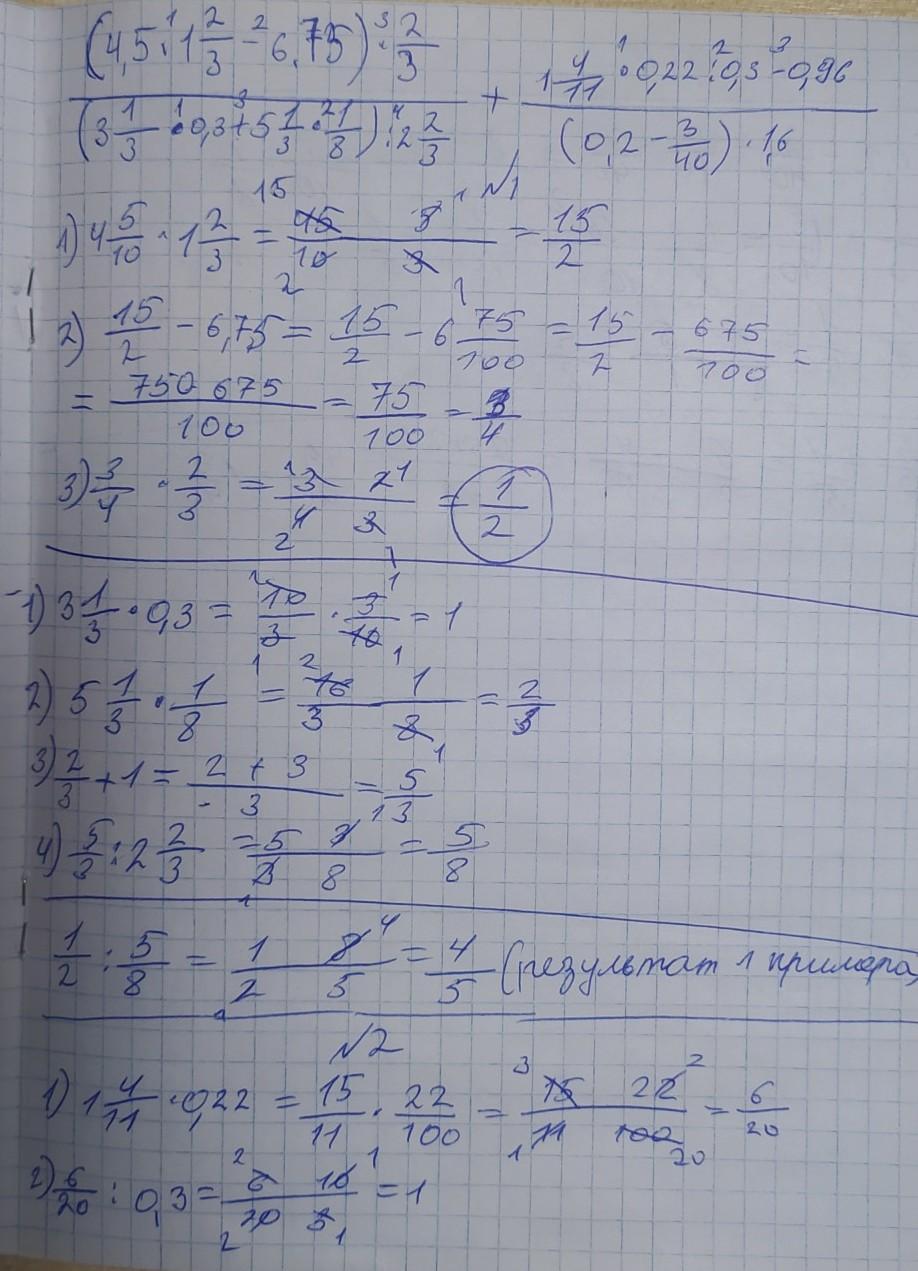 (4,5 · 1 2/3 - 6,75) · 2/3 + 1 4/11 · 0,22 : 0,3 - 0,96
(3 1/3 · 0,3 + 5 1/3 · 1/8) : 2 2/3 (0,2 - 3/40) · 1,6
№1
1) 4 5/10 · 1 2/3 = 45 5 / 10 3 = 15/2
2) 15/2 - 6,75 = 15/2 - 6 75/100 = 15/2 - 675/100 =
= 750 675 / 100 = 75/100 = 3/4
3) 3/4 · 2/3 = 3 2 / 4 3 = 1/2
1) 3 1/3 · 0,3 = 10/3 · 3/10 = 1
2) 5 1/3 · 1/8 = 16 1 / 3 8 = 2/3
3) 2/3 + 1 = 2 + 3 / 3 = 5/3
4) 5/3 : 2 2/3 = 5 3 / 3 8 = 5/8
1/2 : 5/8 = 1 8 / 2 5 = 4/5 (результат 1 примера)
№2
1) 1 4/11 · 0,22 = 15/11 · 22/100 = 15 22 / 11 100 = 6/20
2) 6/20 : 0,3 = 6 10 / 20 3 = 1